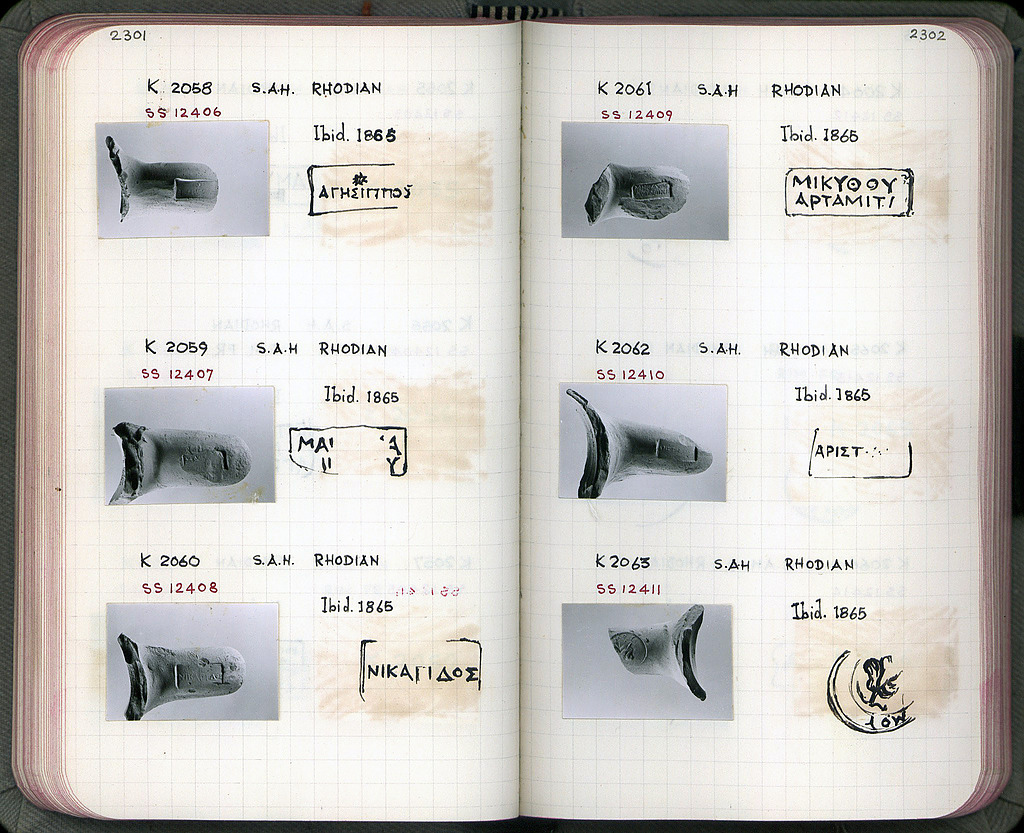 2301
K 2058 S.A.H. RHODIAN
SS 12406
Ibid. 1865
ΑΓΗΣΙΠΠΟΣ
K 2059 S.A.H RHODIAN
SS 12407
Ibid. 1865
ΜΑΙ Ά
Υ
K 2060 S.A.H. RHODIAN
SS 12408
Ibid. 1865
ΝΙΚΑΓΙΔΟΣ
2302
K 2061 S.A.H RHODIAN
SS 12409
Ibid. 1865
ΜΙΚΥΘΟΥ
ΑΡΤΑΜΙΤΙ
K 2062 S.A.H. RHODIAN
SS 12410
Ibid. 1865
ΑΡΙΣΤ
K 2063 S.A.H RHODIAN
SS 12411
Ibid. 1865